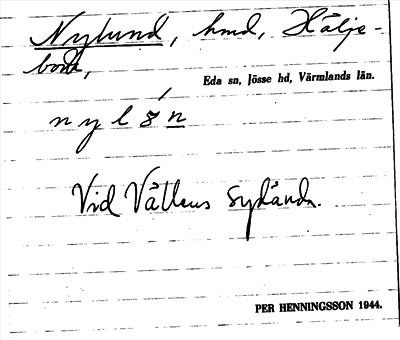 Nylund, hmd, Hälje-
boda,
Eda sn, Jösse hd, Värmlands län.
Vid Vållens sydände.
PER HENNINGSSON 1944.